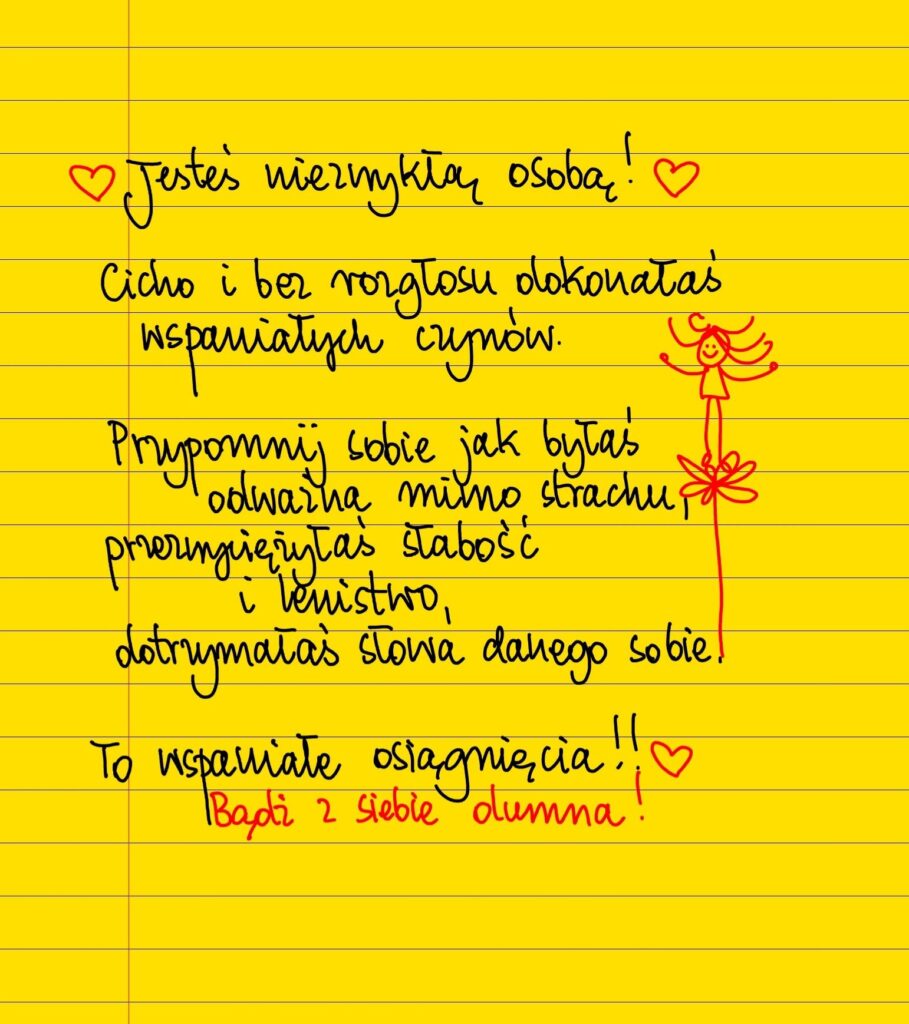 Jesteś niezwykłą osobą!
Cicho i bez rozgłosu dokonałaś
wspaniałych czynów.
Przypomnij sobie jak byłaś
odważna mimo strachu,
przezwyciężyłaś słabość
i lenistwo,
dotrzymałaś słowa danego sobie.
To wspaniałe osiągnięcia!!
Bądź z siebie dumna!